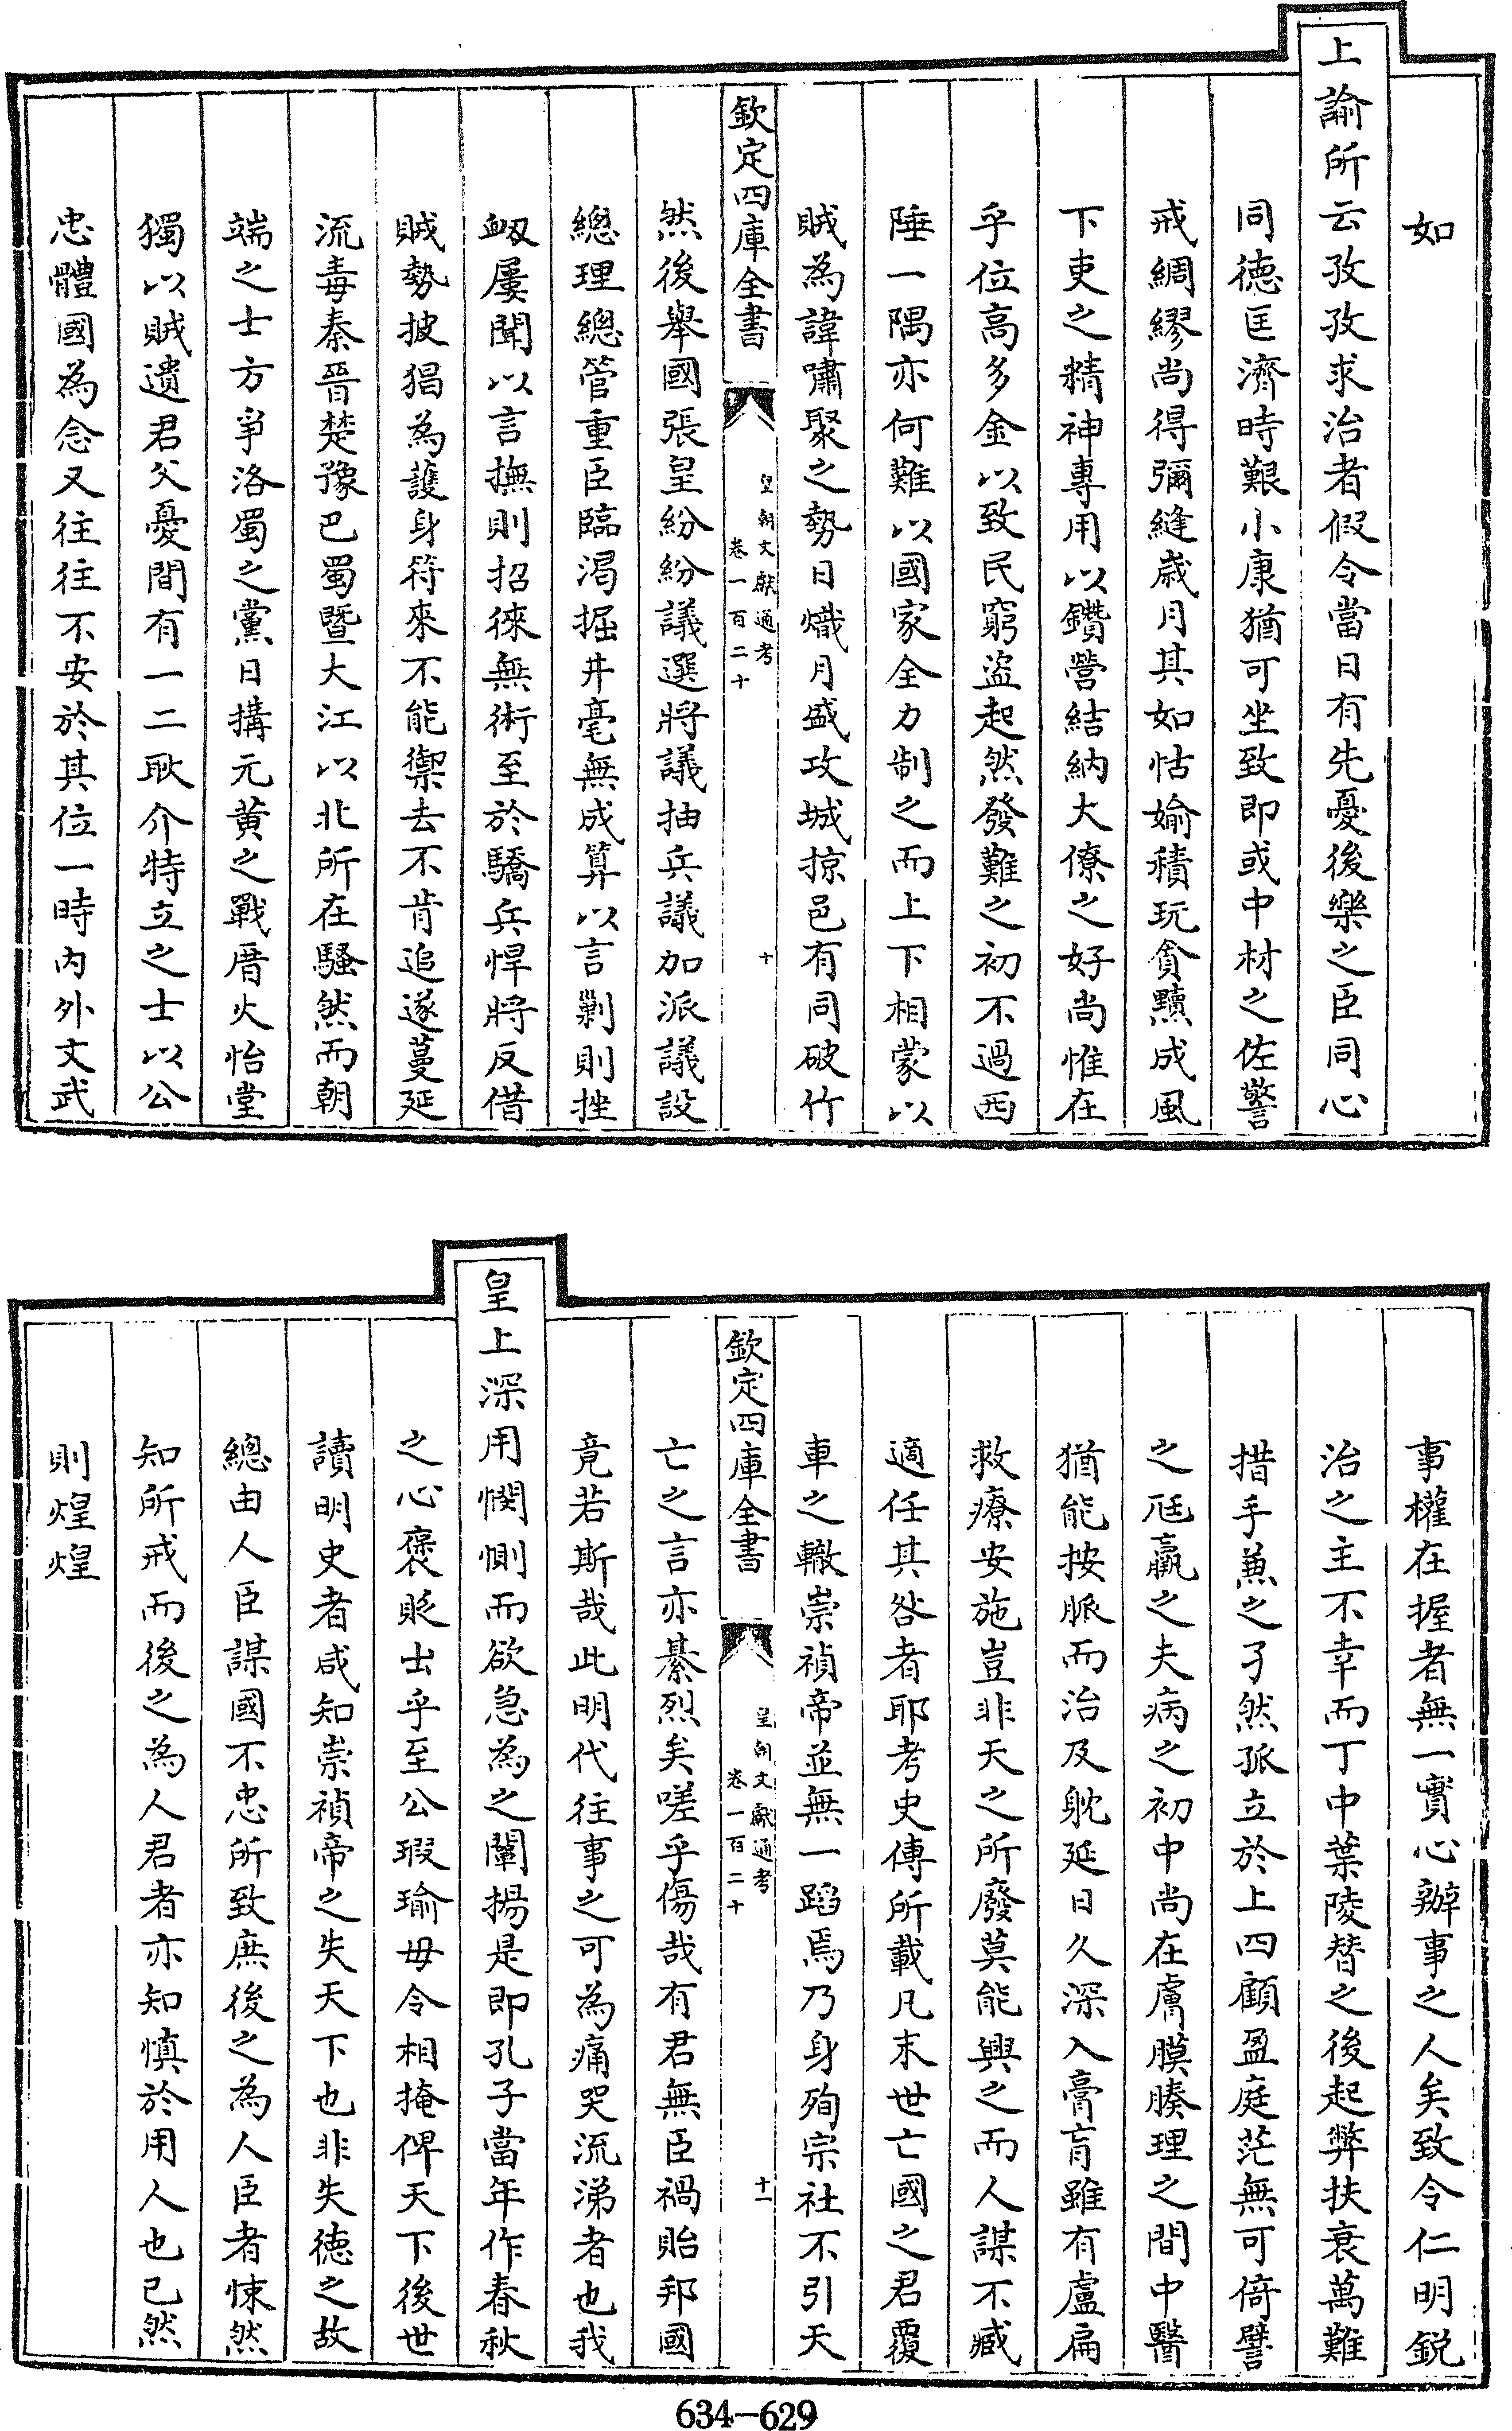 如
上諭所云孜孜求治者假令當日有先憂後樂之臣同心
同徳匡濟時艱小康猶可坐致即或中材之佐警
戒綢繆尚得彌縫歳月其如怙媮積玩貪黷成風
下吏之精神專用以鑽營結納大僚之好尚惟在
乎位高多金以致民窮盜起然發難之初不過西
陲一隅亦何難以國家全力制之而上下相蒙以
賊為諱嘯聚之勢日熾月盛攻城掠邑有同破竹
欽定四庫全書
皇朝文獻通考
卷一百二十
十
然後舉國張皇紛紛議選將議抽兵議加派議設
總理總管重臣臨渴掘井毫無成算以言剿則挫
衂屢聞以言撫則招徠無術至於驕兵悍將反借
賊勢披猖為護身符來不能禦去不肯追遂蔓延
流毒秦晉楚豫巴蜀暨大江以北所在騷然而朝
端之士方爭洛蜀之黨日搆元黃之戰厝火怡堂
獨以賊遺君父憂間有一二耿介特立之士以公
忠體國為念又往往不安於其位一時內外文武
事權在握者無一實心辦事之人矣致令仁明鋭
治之主不幸而丁中葉陵替之後起弊扶衰萬難
措手兼之孑然孤立於上四顧盈庭茫無可倚譬
之尫羸之夫病之初中尚在膚膜腠理之間中醫
猶能按脈而治及躭延日久深入膏肓雖有盧扁
救療安施豈非天之所廢莫能興之而人謀不臧
適任其咎者耶考史傳所載凡末世亡國之君覆
車之轍崇禎帝並無一蹈焉乃身殉宗社不引天
欽定四庫全書
皇朝文獻通考
卷一百二十
十一
亡之言亦綦烈矣嗟乎傷哉有君無臣禍貽邦國
竟若斯哉此明代往事之可為痛哭流涕者也我
皇上深用憫惻而欲急為之闡揚是即孔子當年作春秋
之心褒貶出乎至公瑕瑜毋令相掩俾天下後世
讀明史者咸知崇禎帝之失天下也非失徳之故
總由人臣謀國不忠所致庶後之為人臣者悚然
知所戒而後之為人君者亦知慎於用人也已然
則煌煌
634-629